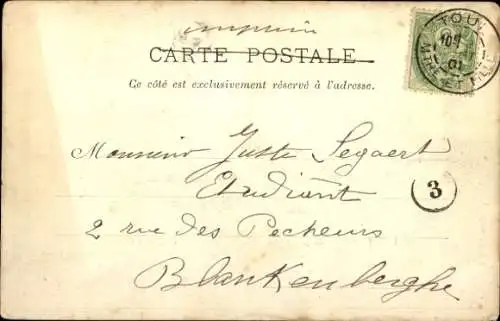 imprimé
CARTE POSTALE
Ce côté est exclusivement réservé à l'adresse.
TOUL
01
Mthe-ET-Mlle
Monsieur Juste Segaert
Etudiant
3
2 rue des Pecheurs
Blankenberghe